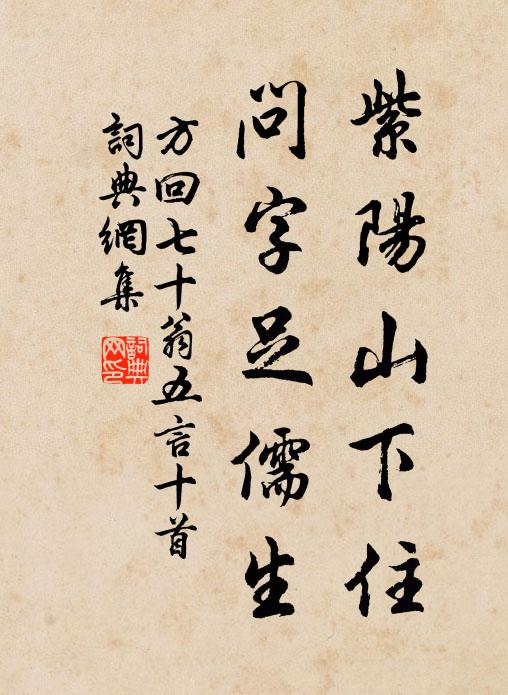 紫陽山下住
問字足儒生
方回七十翁五言十首
詞典網集
詞典
网印